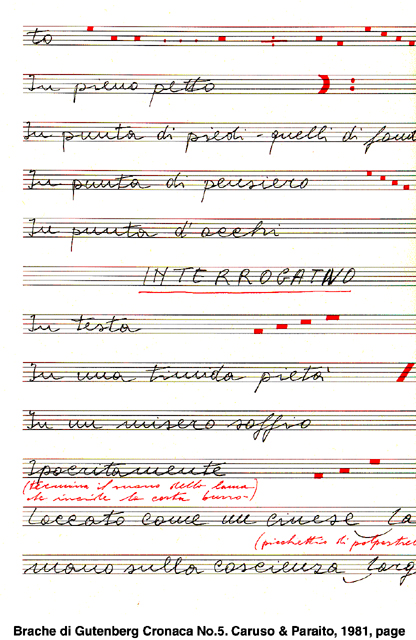 to
In pieno petto
In punta di piedi - quelli di fond
In punta di pensiero
In punta d'occhi
INTERROGATIVO
In testa
In una timida pietà
In un misero soffio
Ipocritamente
(termina il suono della lama)
che incide la carta
Laccato come un cinese la
(picchettio di polpastrel
mano sulla coscienza larg
Brache di Gutenberg Cronaca No.5. Caruso & Paraito, 1981, page